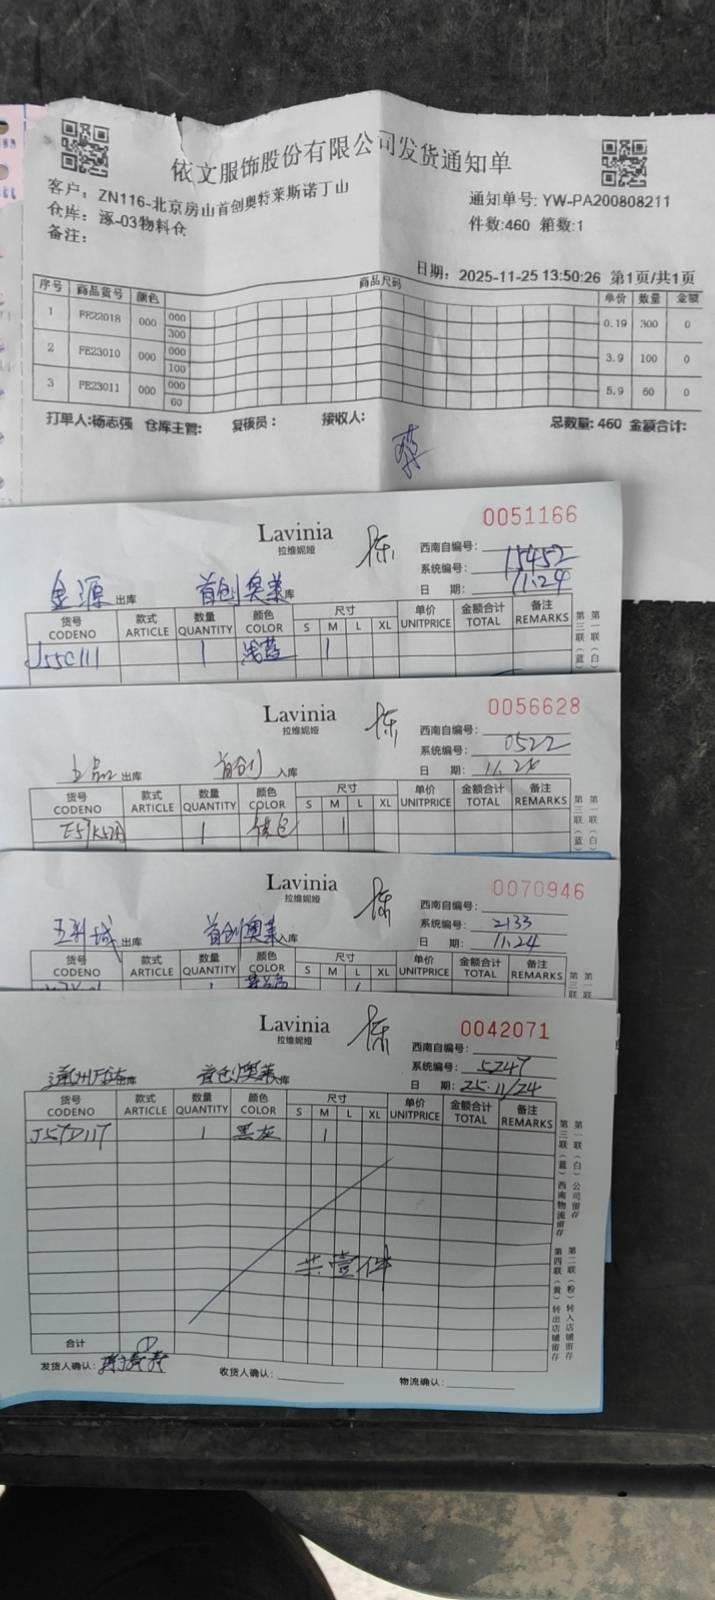 依文服饰股份有限公司发货通知单
客户: ZN116-北京房山首创奥特莱斯诺丁山
通知单号: YW-PA200808211
仓库: 涿-03物料仓
件数:460 箱数:1
备注:
日期: 2025-11-25 13:50:26 第1页/共1页
序号 商品货号 颜色 商品尺码 单价 数量 金额
1 FE22018 000 000 0.19 300 0
300
2 FE23010 000 000 3.9 100 0
100
3 FE23011 000 000 5.9 60 0
60
打单人:杨志强 仓库主管: 复核员: 接收人: 总数量: 460 金额合计:
Lavinia
拉维妮娅
0051166
西南自编号:
系统编号: 15452
日 期: 11.24
金源 出库 首创奥莱 库
货号 款式 数量 颜色 尺寸 单价 金额合计 备注
CODENO ARTICLE QUANTITY COLOR S M L XL UNITPRICE TOTAL REMARKS
J55C111 1 浅蓝 1
第一联(白)
第三联(蓝)
Lavinia
拉维妮娅
0056628
西南自编号:
系统编号: 0522
日 期: 11.24
出库 首创 入库
货号 款式 数量 颜色 尺寸 单价 金额合计 备注
CODENO ARTICLE QUANTITY COLOR S M L XL UNITPRICE TOTAL REMARKS
1 1
第一联(白)
第三联(蓝)
Lavinia
拉维妮娅
0070946
西南自编号:
系统编号: 2133
日 期: 11.24
五彩城 出库 首创奥莱 入库
货号 款式 数量 颜色 尺寸 单价 金额合计 备注
CODENO ARTICLE QUANTITY COLOR S M L XL UNITPRICE TOTAL REMARKS
第一联(白)
第三联(蓝)
Lavinia
拉维妮娅
0042071
西南自编号:
系统编号: 5247
日 期: 25.11/24
首创奥莱
货号 款式 数量 颜色 尺寸 单价 金额合计 备注
CODENO ARTICLE QUANTITY COLOR S M L XL UNITPRICE TOTAL REMARKS
J57D117 1 黑灰 1
共壹件
第一联(白)公司留存
第三联(蓝)西南物流留存
第二联(粉)转入店铺留存
第四联(黄)转出店铺留存
合计
发货人确认: 收货人确认: 物流确认: